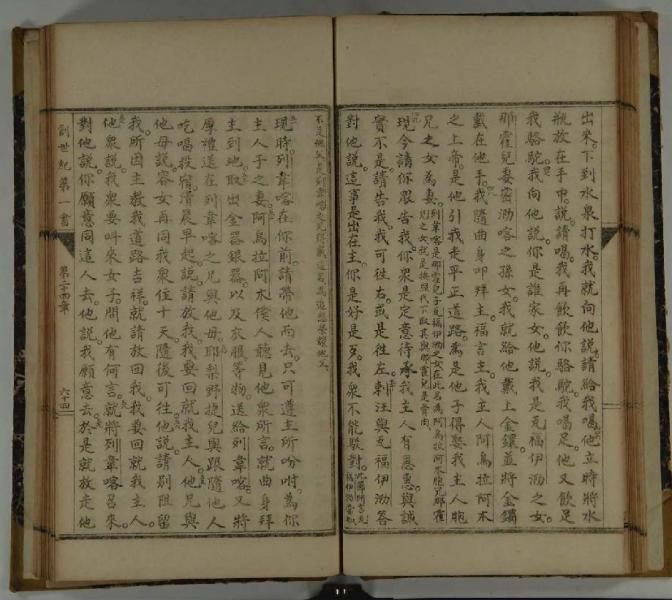 出來。下到水泉打水。我就向他說請給我喝他立時將水
瓶放在手中。說請喝。我再飲飲你駱駝我喝足。他又飲足
我駱駝。我向他說。你是誰家女他說。我是瓦福伊泐之女。
那霍兒妻密泐喀之孫女。我就給他戴上金鐶。並將金鐲
戴在他手。我隨曲身叩拜。主福言主我主人阿烏拉阿木
之上帝。是他引我走乎正道路。為是他子得娶我主人胞
兄之女為妻。
現今請你眾告我。你眾是定意待承我主人有恩惠與誠
實不是請告我。我可往右。或是往左。剌汪與瓦福伊泐答
對他說這事是出在主你是好是歹。我眾不能駁對。
不是他父。是列韋喀之兄
現時列韋喀在你前。請帶他而去。只可遵主所吩咐。為你
主人子之妻阿烏拉阿木僕人聽見他眾所言。就曲身拜
主到地取出金器銀器。以及衣服等物。送給列韋喀又將
厚禮送在列韋喀之兄與他母。耶梨野捷兒與跟隨他人
吃喝投宿。清晨早起。說請放我。我要回就我主人。他兄與
他母說。容女再同我眾住十天。隨後可往。他說。請別阻留
我。所因主教我道路吉祥。就請放回我。我要回就我主人。
他眾說。我眾要叫來女子。問他有何言。就將列韋喀召來。
對他說你願意同這人去。他說。我願意去。於是就放走他
創世紀第一書 第二十四章 六十四